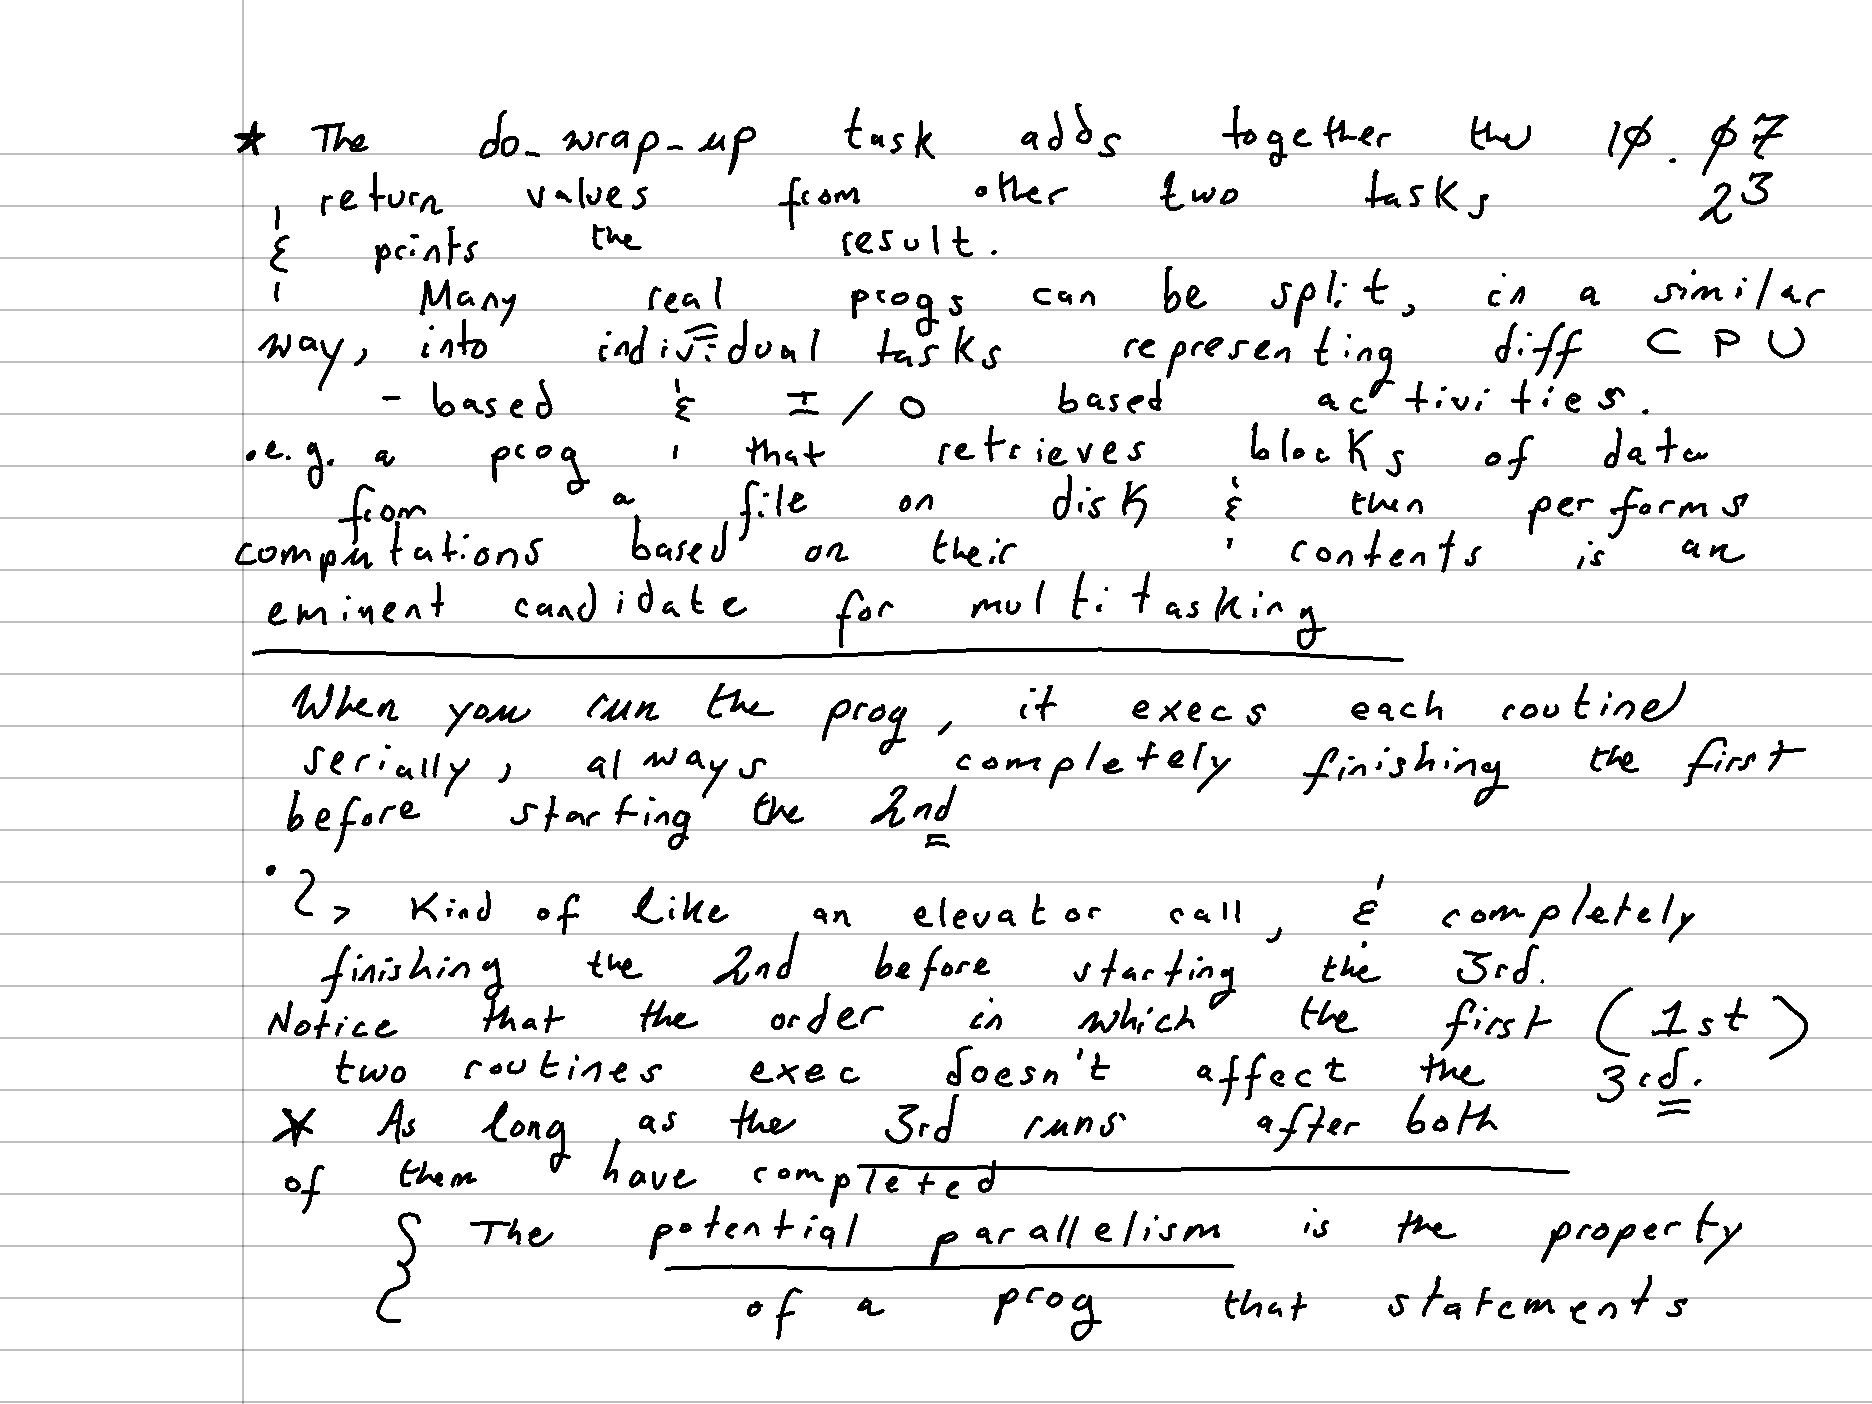 * The do_wrap_up task adds together the 10.07
return values from other two tasks 23
& prints the result.
Many real progs can be split, in a similar
way, into individual tasks representing diff CPU
- based & I/O based activities.
.e.g. a prog that retrieves blocks of data
from a file on disk & then performs
computations based on their contents is an
eminent candidate for multitasking
When you run the prog, it execs each routine
serially, always completely finishing the first
before starting the 2nd
• > Kind of like an elevator call, & completely
finishing the 2nd before starting the 3rd.
Notice that the order in which the first (1st)
two routines exec doesn't affect the 3rd.
* As long as the 3rd runs after both
of them have completed
{ The potential parallelism is the property
of a prog that statements